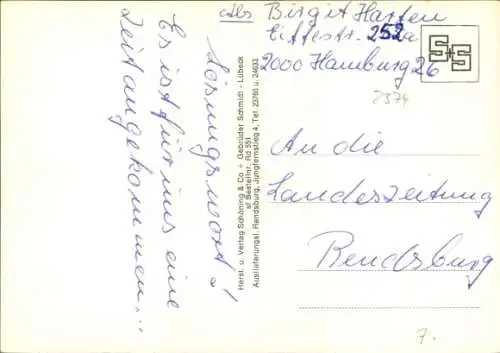 Abs Birgit Harten
Eiffestr. 252a
2000 Hamburg 26
S+S
2374
An die
Landeszeitung
Rendsburg
7.
Lösungswort:
Es ist für uns eine
Zeit angekommen...
Herst. u. Verlag Schöning & Co + Gebrüder Schmidt - Lübeck
sf Bestellnr. Rd 551
Auslieferungsl. Rendsburg, Jungfernstieg 4, Tel. 23765 u. 24633